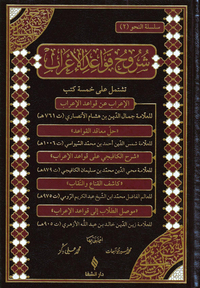 سلسلة النحو (٢)
شروح قواعد الإعراب
تشتمل على خمسة كتب
الإعراب عن قواعد الإعراب
للعلامة جمال الدين بن هشام الأنصاري (ت ٧٦١ هـ)
«حل معاقد القواعد»
للعلامة شمس الدين أحمد بن محمد السيواسي (ت ١٠٠٦ هـ)
«شرح الكافيجي على قواعد الإعراب»
للعلامة محيي الدين محمد بن سليمان الكافيجي (ت ٨٧٩ هـ)
«كاشف القناع والنقاب»
«موصل الطلاب إلى قواعد الإعراب»
للعلامة زين الدين خالد بن عبد الله الأزهري (ت ٩٠٥ هـ)
دار الشفقة